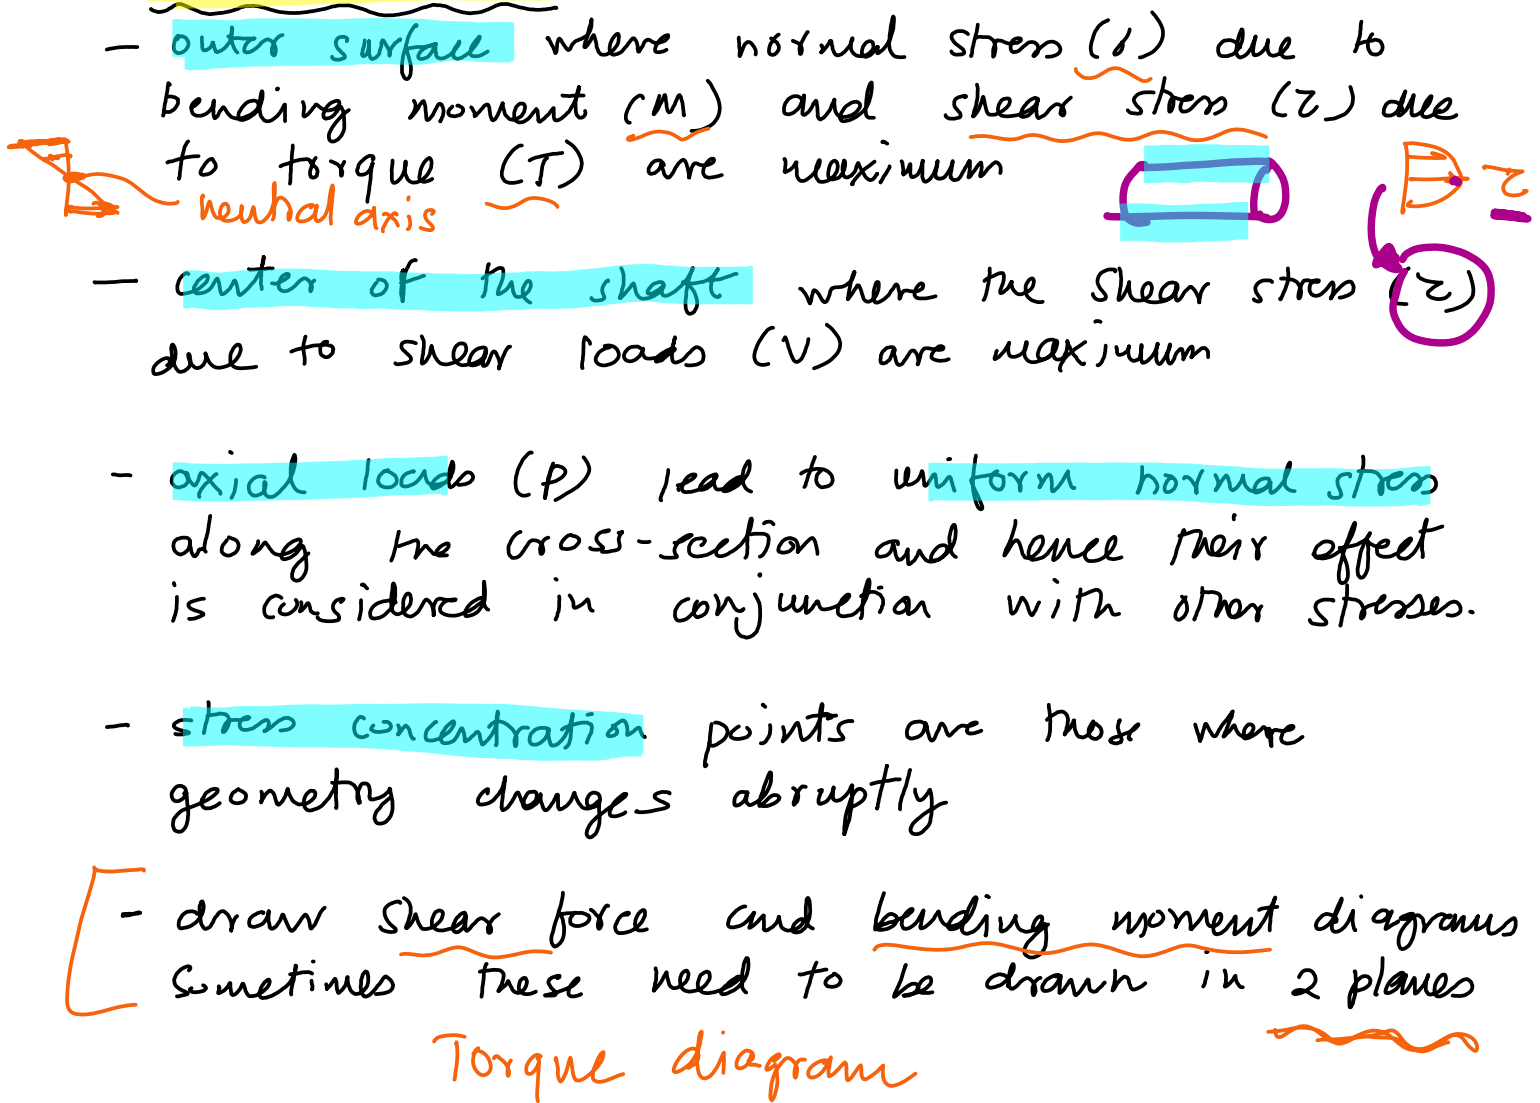 - outer surface where normal stress (σ) due to
bending moment (M) and shear stress (τ) due
to torque (T) are maximum
neutral axis
τ
- center of the shaft where the shear stress (τ)
due to shear loads (V) are maximum
- axial loads (P) lead to uniform normal stress
along the cross-section and hence their effect
is considered in conjunction with other stresses.
- stress concentration points are those where
geometry changes abruptly
- draw shear force and bending moment diagrams
Sometimes these need to be drawn in 2 planes
Torque diagram